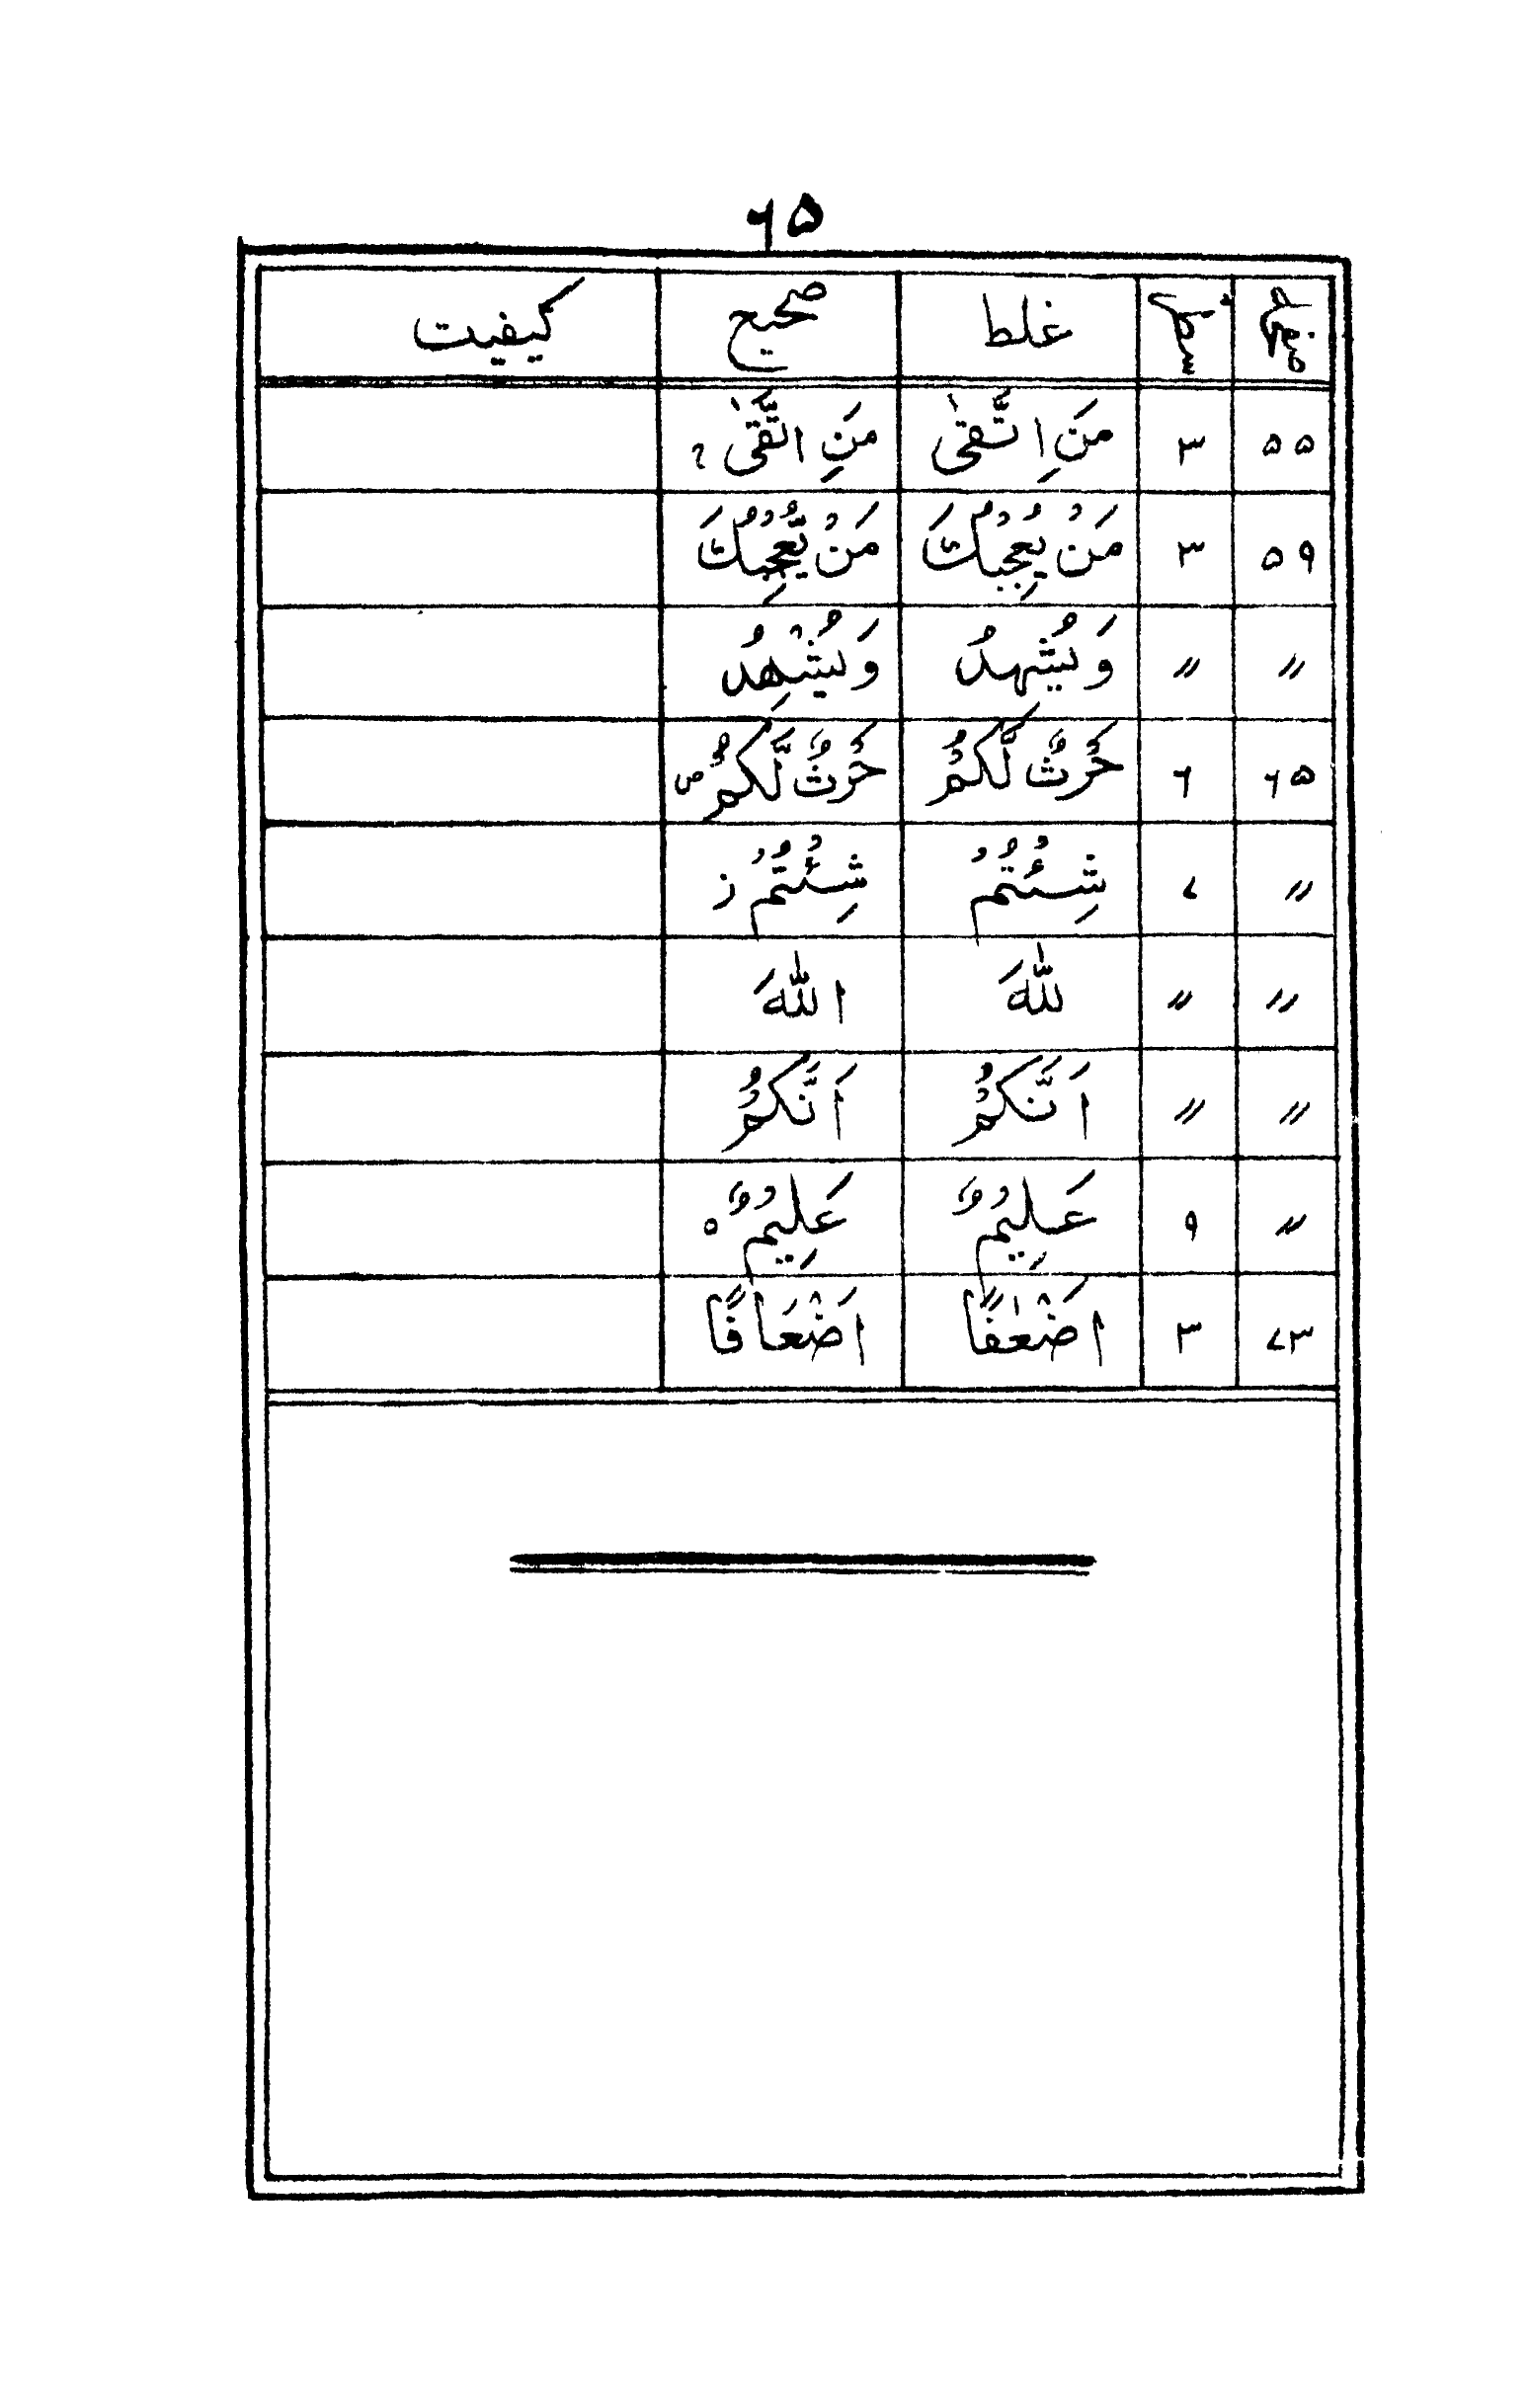 ۶۵
صفحہ سطر غلط صحیح کیفیت
۵۵ ۳ مَنَِ اتَّقٰی مَنِ اتَّقٰی
۵۹ ۳ مَنْ یُعْجِبُكَ مَنْ یُّعْجِبُكَ
〃 〃 وَیُشْہِدُ وَیُشْهِدُ
۶۵ ۶ حَرْثٌ لَّكُمْ حَرْثٌ لَّكُمْ ص
〃 ۷ شِئْتُمْ شِئْتُمْ ز
〃 〃 للّٰهَ اللّٰهَ
〃 〃 اَنَّكُمْ اَنَّكُمْ
〃 ۹ عَلِیْمٌ عَلِیْمٌ ه
۷۳ ۳ اَضْعٰفًا اَضْعَافًا